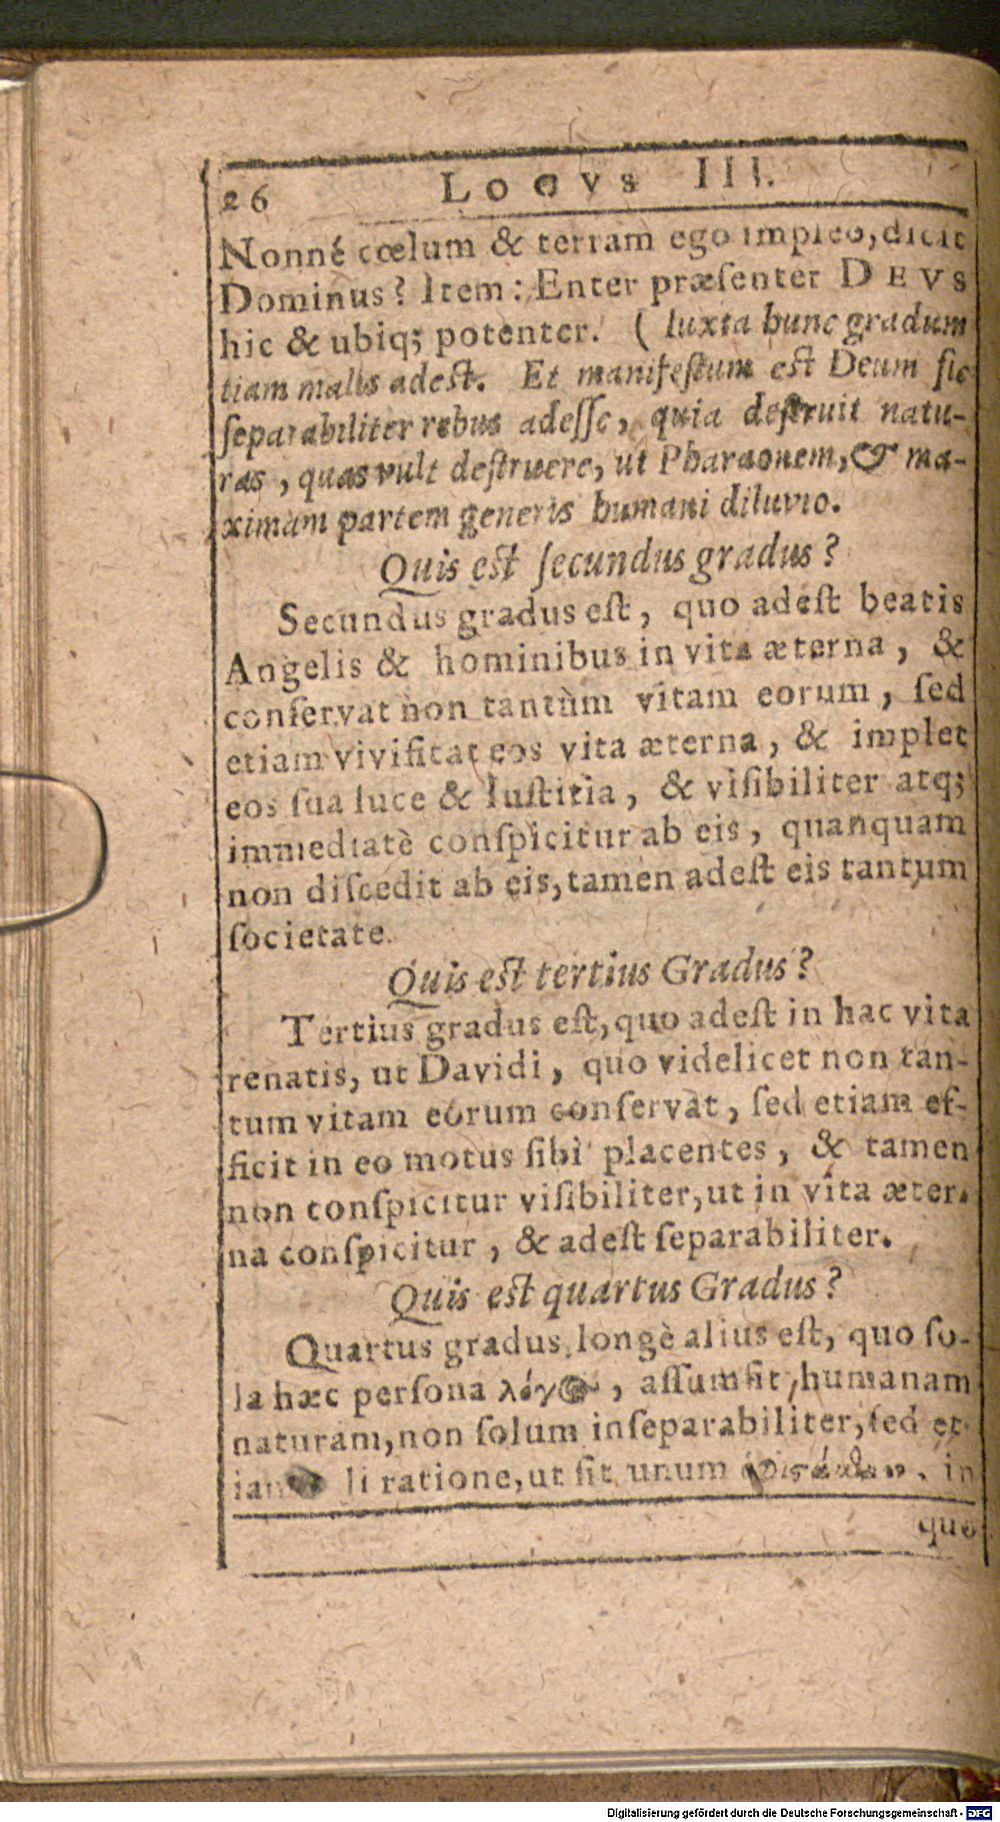 26 LOCVS III.
Nonné cœlum & terram ego impleo, dicit
Dominus? Item: Enter præſenter DEVS
hic & ubiq; potenter. (Iuxta hunc gradum
tiam malis adest. Et manifeſtum est Deum ſic
ſeparabiliter rebus adeſſe, quia deſtruit natu-
ras, quas vult deſtruere, ut Pharaonem, & ma-
ximam partem generis humani diluvio.
Quis est ſecundus gradus?
Secundus gradus eſt, quo adeſt beatis
Angelis & hominibus in vita æterna, &
conſervat non tantùm vitam eorum, ſed
etiam vivificat eos vita æterna, & implet
eos ſua luce & Iuſtitia, & viſibiliter atq;
immediatè conſpicitur ab eis, quanquam
non diſcedit ab eis, tamen adeſt eis tantum
ſocietate.
Quis est tertius Gradus?
Tertius gradus eſt, quo adeſt in hac vita
renatis, ut Davidi, quo videlicet non tan-
tum vitam eorum conſervat, ſed etiam ef-
ficit in eo motus ſibi placentes, & tamen
non conſpicitur viſibiliter, ut in vita æter-
na conſpicitur, & adeſt ſeparabiliter.
Quis est quartus Gradus?
Quartus gradus longè alius eſt, quo ſo-
la hæc perſona λόγος, aſſumſit humanam
naturam, non ſolum inſeparabiliter, ſed et-
iam li ratione, ut ſit unum in
quo
Digitalisierung gefördert durch die Deutsche Forschungsgemeinschaft - DFG